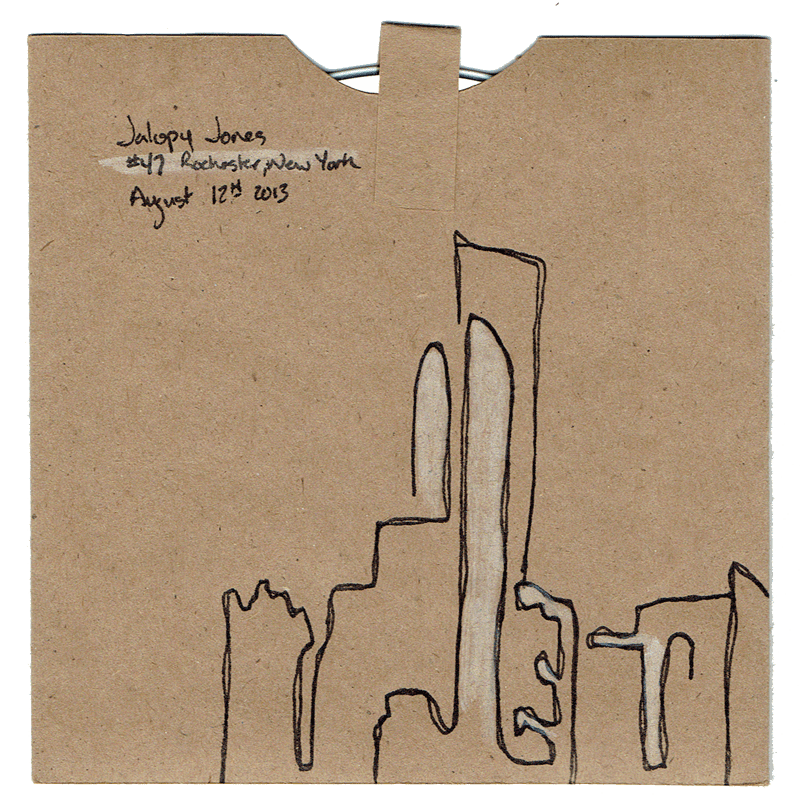 Jalopy Jones
#47 Rochester, New York
August 12th 2013